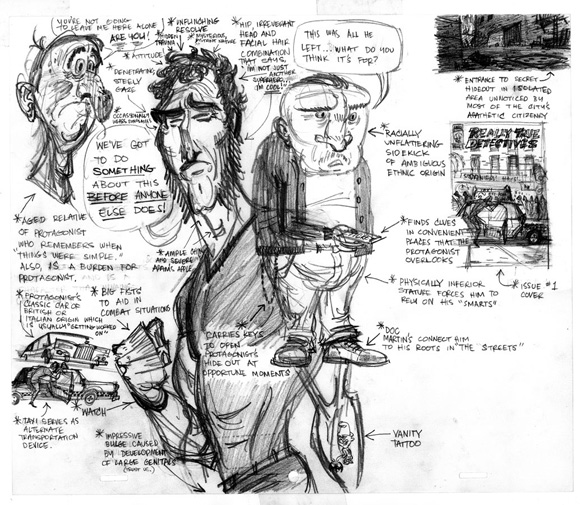 YOU'RE NOT GOING
TO LEAVE ME HERE ALONE
ARE YOU!
*UNFLINCHING
RESOLVE
*ATTITUDE
*PENETRATING
STEELY
GAZE
*OCCASIONALLY
WEARS SUNGLASSES
*HIP, IRREVERENT
HEAD AND
FACIAL HAIR
COMBINATION
THAT SAYS,
"I'M NOT JUST
ANOTHER
SUPERHERO...
I'M COOL!"
THIS WAS ALL HE
LEFT... WHAT DO YOU
THINK IT'S FOR?
*ENTRANCE TO SECRET
HIDEOUT IN ISOLATED
AREA UNNOTICED BY
MOST OF THE CITY'S
APATHETIC CITIZENRY
REALLY TRUE
DETECTIVES
WE'VE GOT
TO DO
SOMETHING
ABOUT THIS
BEFORE ANYONE
ELSE DOES!
*RACIALLY
UNFLATTERING
SIDEKICK
OF AMBIGUOUS
ETHNIC ORIGIN
*AGED RELATIVE
OF PROTAGONIST
WHO REMEMBERS WHEN
THINGS WERE SIMPLE."
ALSO, IS A BURDEN FOR
PROTAGONIST.
*AMPLE CHIN
AND SEVERE
ADAM'S APPLE
*FINDS CLUES
IN CONVENIENT
PLACES THAT THE
PROTAGONIST
OVERLOCKS
*ISSUE #1
COVER
*PHYSICALLY INFERIOR
STATURE FORCES HIM TO
RELY ON HIS "SMARTS"
*PROTAGONIST'S
CLASSIC CAR OF
BRITISH OR
ITALIAN ORIGIN WHICH
IS USUALLY "GETTING WORKED
ON"
*BIG FISTS
TO AID IN
COMBAT SITUATIONS
CARRIES KEYS
TO OPEN
PROTAGONIST'S
HIDE OUT AT
OPPORTUNE MOMENTS
*DOC
MARTIN'S CONNECT HIM
TO HIS ROOTS IN "THE STREETS"
*WATCH
*TAXI SERVES AS
ALTERNATE
TRANSPORTATION
DEVICE.
*IMPRESSIVE
BULGE CAUSED
BY DEVELOPMENT
OF LARGE GENITALS
(TRUST US.)
VANITY
TATTOO